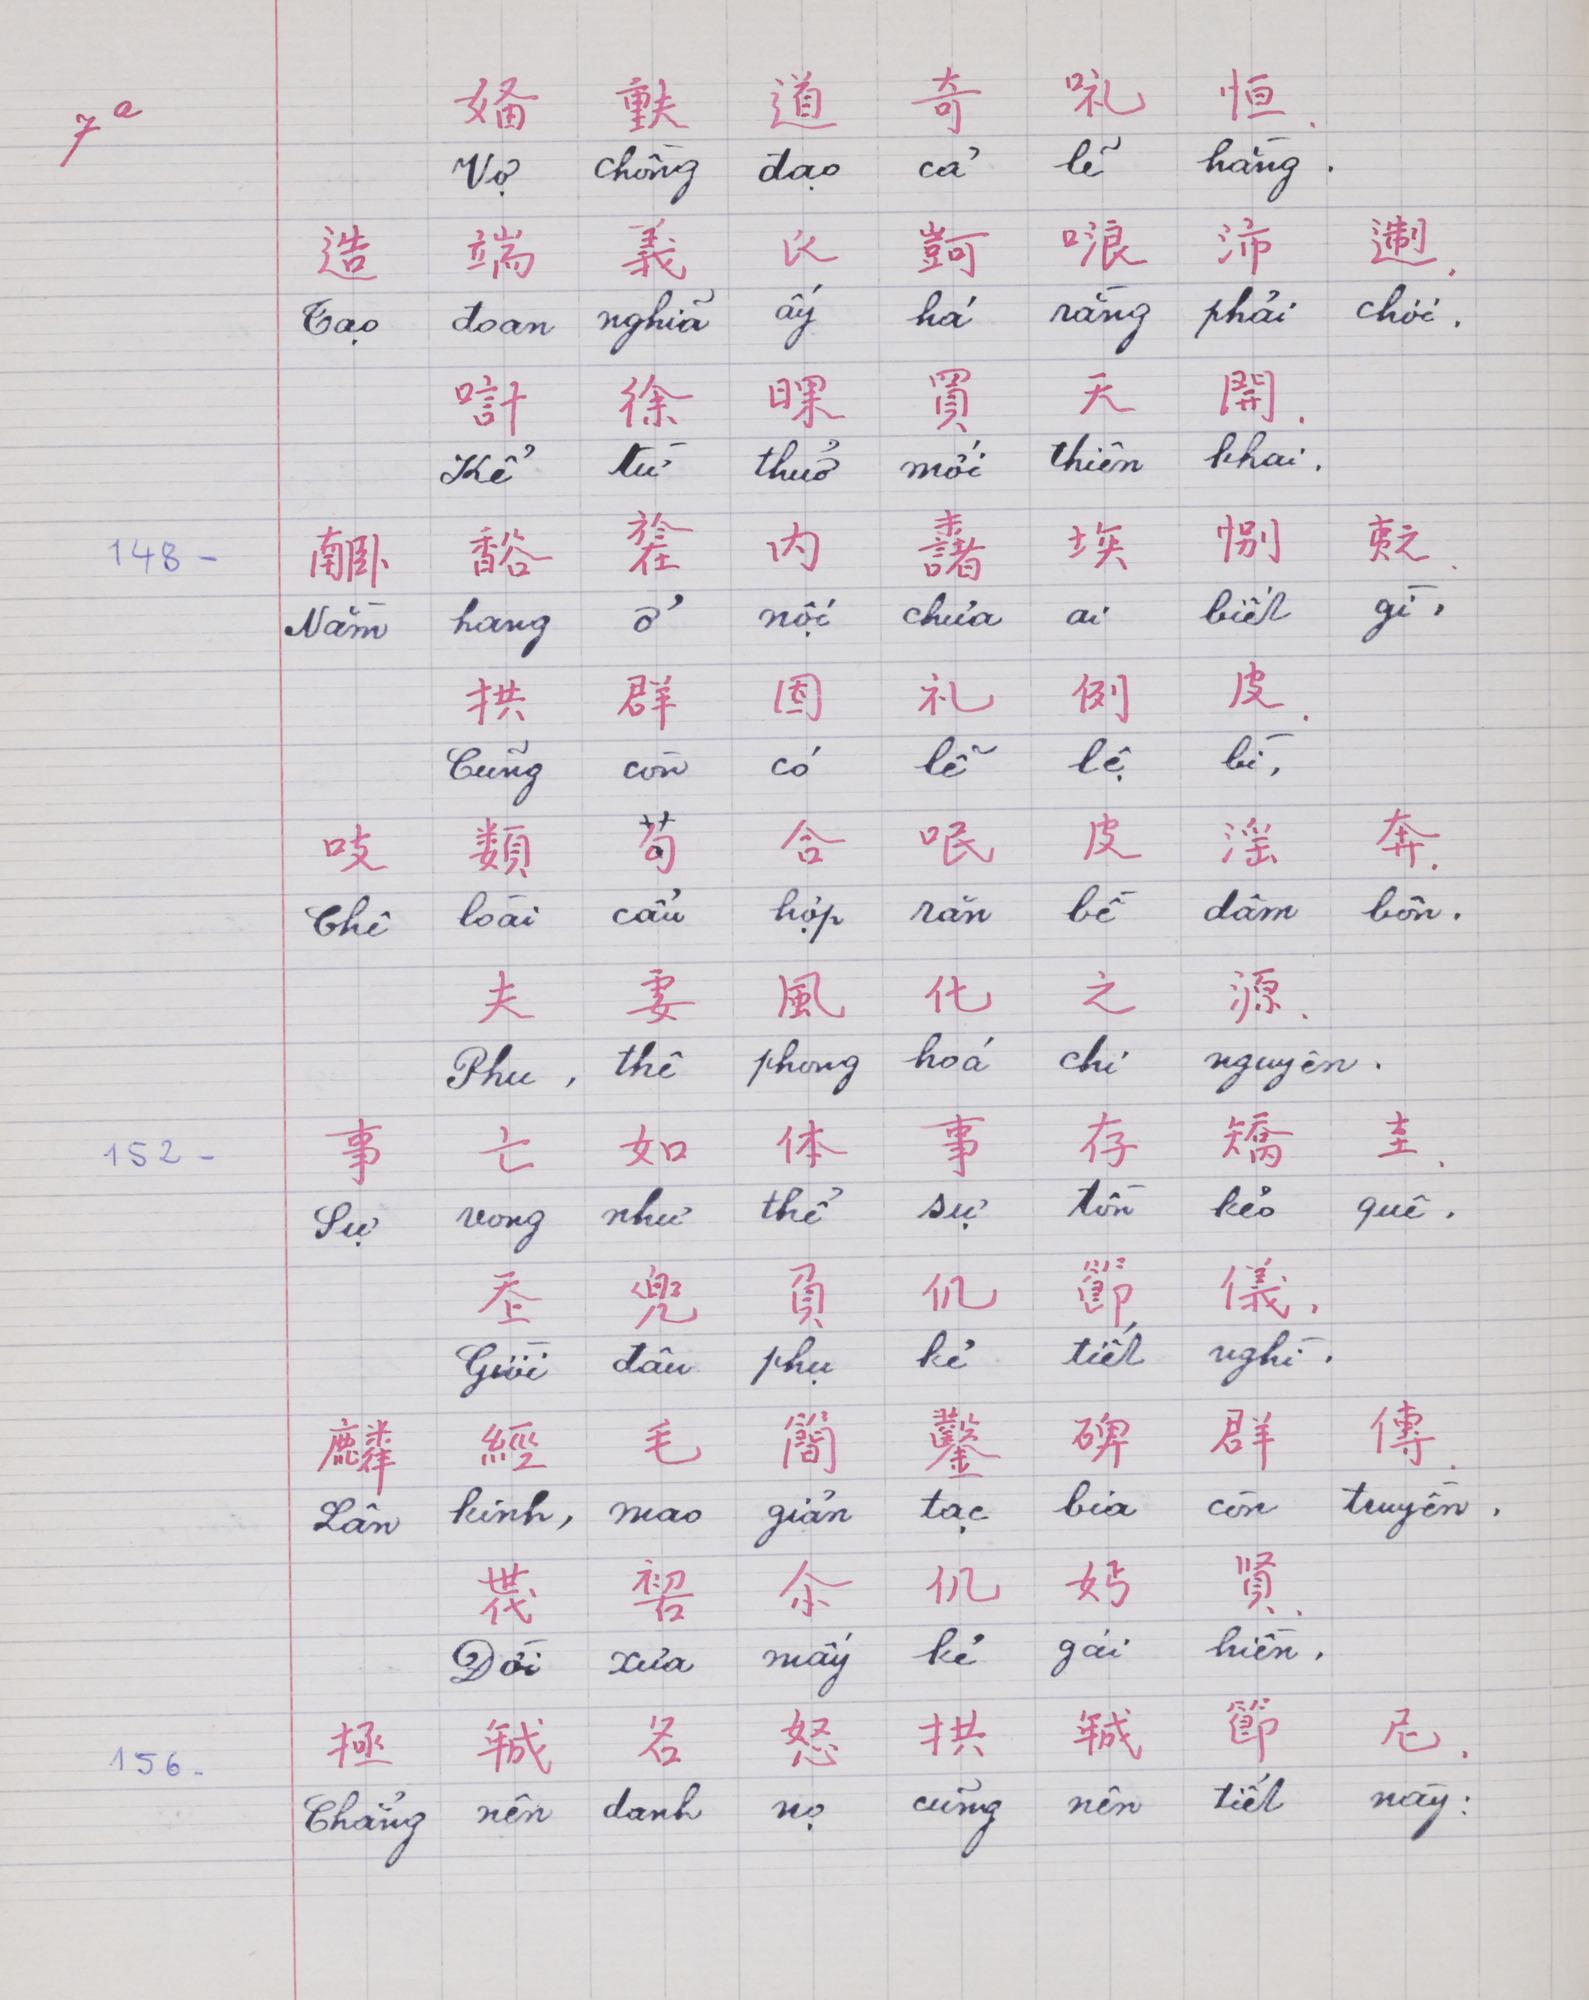 7a
𡞕 𫯳 道 奇 𠲥 恒.
Vợ chồng đạo cả lễ hằng.
造 端 義 𧘇 𱺵 哴 沛 𨔍.
Tạo đoan nghiã ấy há rằng phải chơi.
計 徐 𣇫 買 天 開.
Kể từ thuở mới thiên khai.
148-
𦣰 𧯄 於 内 𣗓 埃 別 夷.
Nằm hang ở nội chưa ai biết gì,
拱 群 固 礼 例 皮.
Cũng còn có lễ lệ bì,
吱 類 苟 合 呡 皮 淫 奔.
Chê loài cẩu hợp rằn bề dâm bôn.
夫 妻 風 化 之 源.
Phu, thê phong hoá chi nguyên.
152-
事 亡 如 体 事 存 矯 圭.
Sự vong như thể sự tồn kẻo quê.
𡗶 兜 負 仉 節 儀.
Giời đâu phụ kẻ tiết nghì.
麟 經 毛 簡 鑿 碑 群 傳.
Lân kinh, mao giản tạc bia còn truyền.
𠁀 𠸗 余 仉 𡛔 賢.
Đời xưa mấy kẻ gái hiền.
156-
拯 𢧚 名 怒 拱 𢧚 節 尼.
Chẳng nên danh nọ cũng nên tiết này: